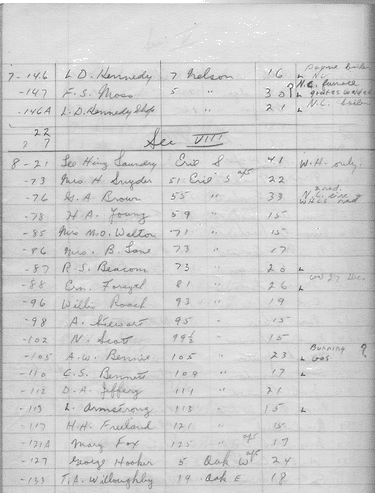 7-146 L.D. Kennedy 7 Nelson 16 N.C.
-147 F.S. Moss 5 " 30 ? N.C. furnace
-146A L.D. Kennedy Shop " 21 N.C. boiler
22
27
Sec VIII
8-21 Lee Hing Laundry Erie S 41 W.H. only.
-73 Mrs H. Snyder 51 Erie S 22
-76 G.A. Brown 55 " 33
-78 H.A. Young 59 " 15
-85 Mrs M.O. Walton 71 " 15
-86 Mrs. B. Lane 73 " 17
-87 R.S. Beacom 73 " 20
-88 81 " 26
-96 Willis Roach 93 " 19
-98 A. Stewart 95 " 15
-102 N. Scott 99½ " 15
-105 A.W. Bennie 105 " 23 Burning Gas ?
-110 C.S. Bennett 109 " 17
-112 D.A. Jeffery 111 " 21
-113 L. Armstrong 113 " 15
-117 H.H. Freeland 121 " 15
-121A Mary Fox 125 " 17
-127 George Hooker 5 Oak W 24
-133 T.A. Willoughby 14 Oak E 18